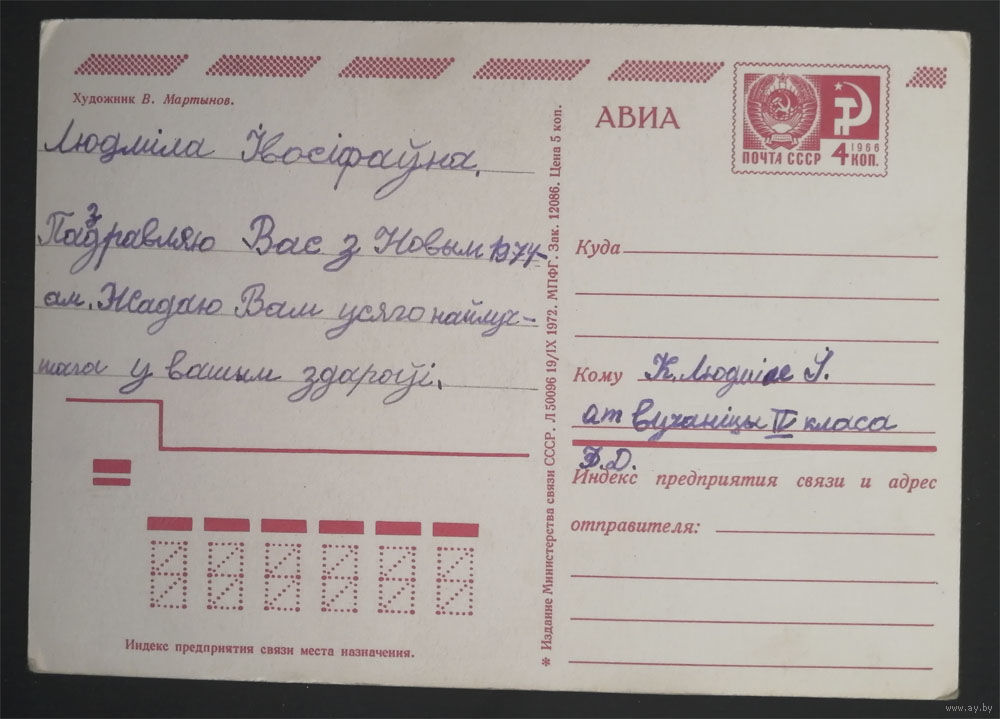 Художник В. Мартынов.
Людміла Івосіфаўна.
Паздравляю Вас з Новым 1974-
ам. Жадаю Вам усяго найлуч-
шага у вашым здароўі.
Индекс предприятия связи места назначения.
* Издание Министерства связи СССР. Л 50096 19/IX 1972. МПФГ. Зак. 12086. Цена 5 коп.
АВИА
ПОЧТА СССР
1966
4 КОП.
Куда
Кому К. Людміле І.
ат вучаніцы IV класа
Д.
Индекс предприятия связи и адрес
отправителя:
www.ay.by